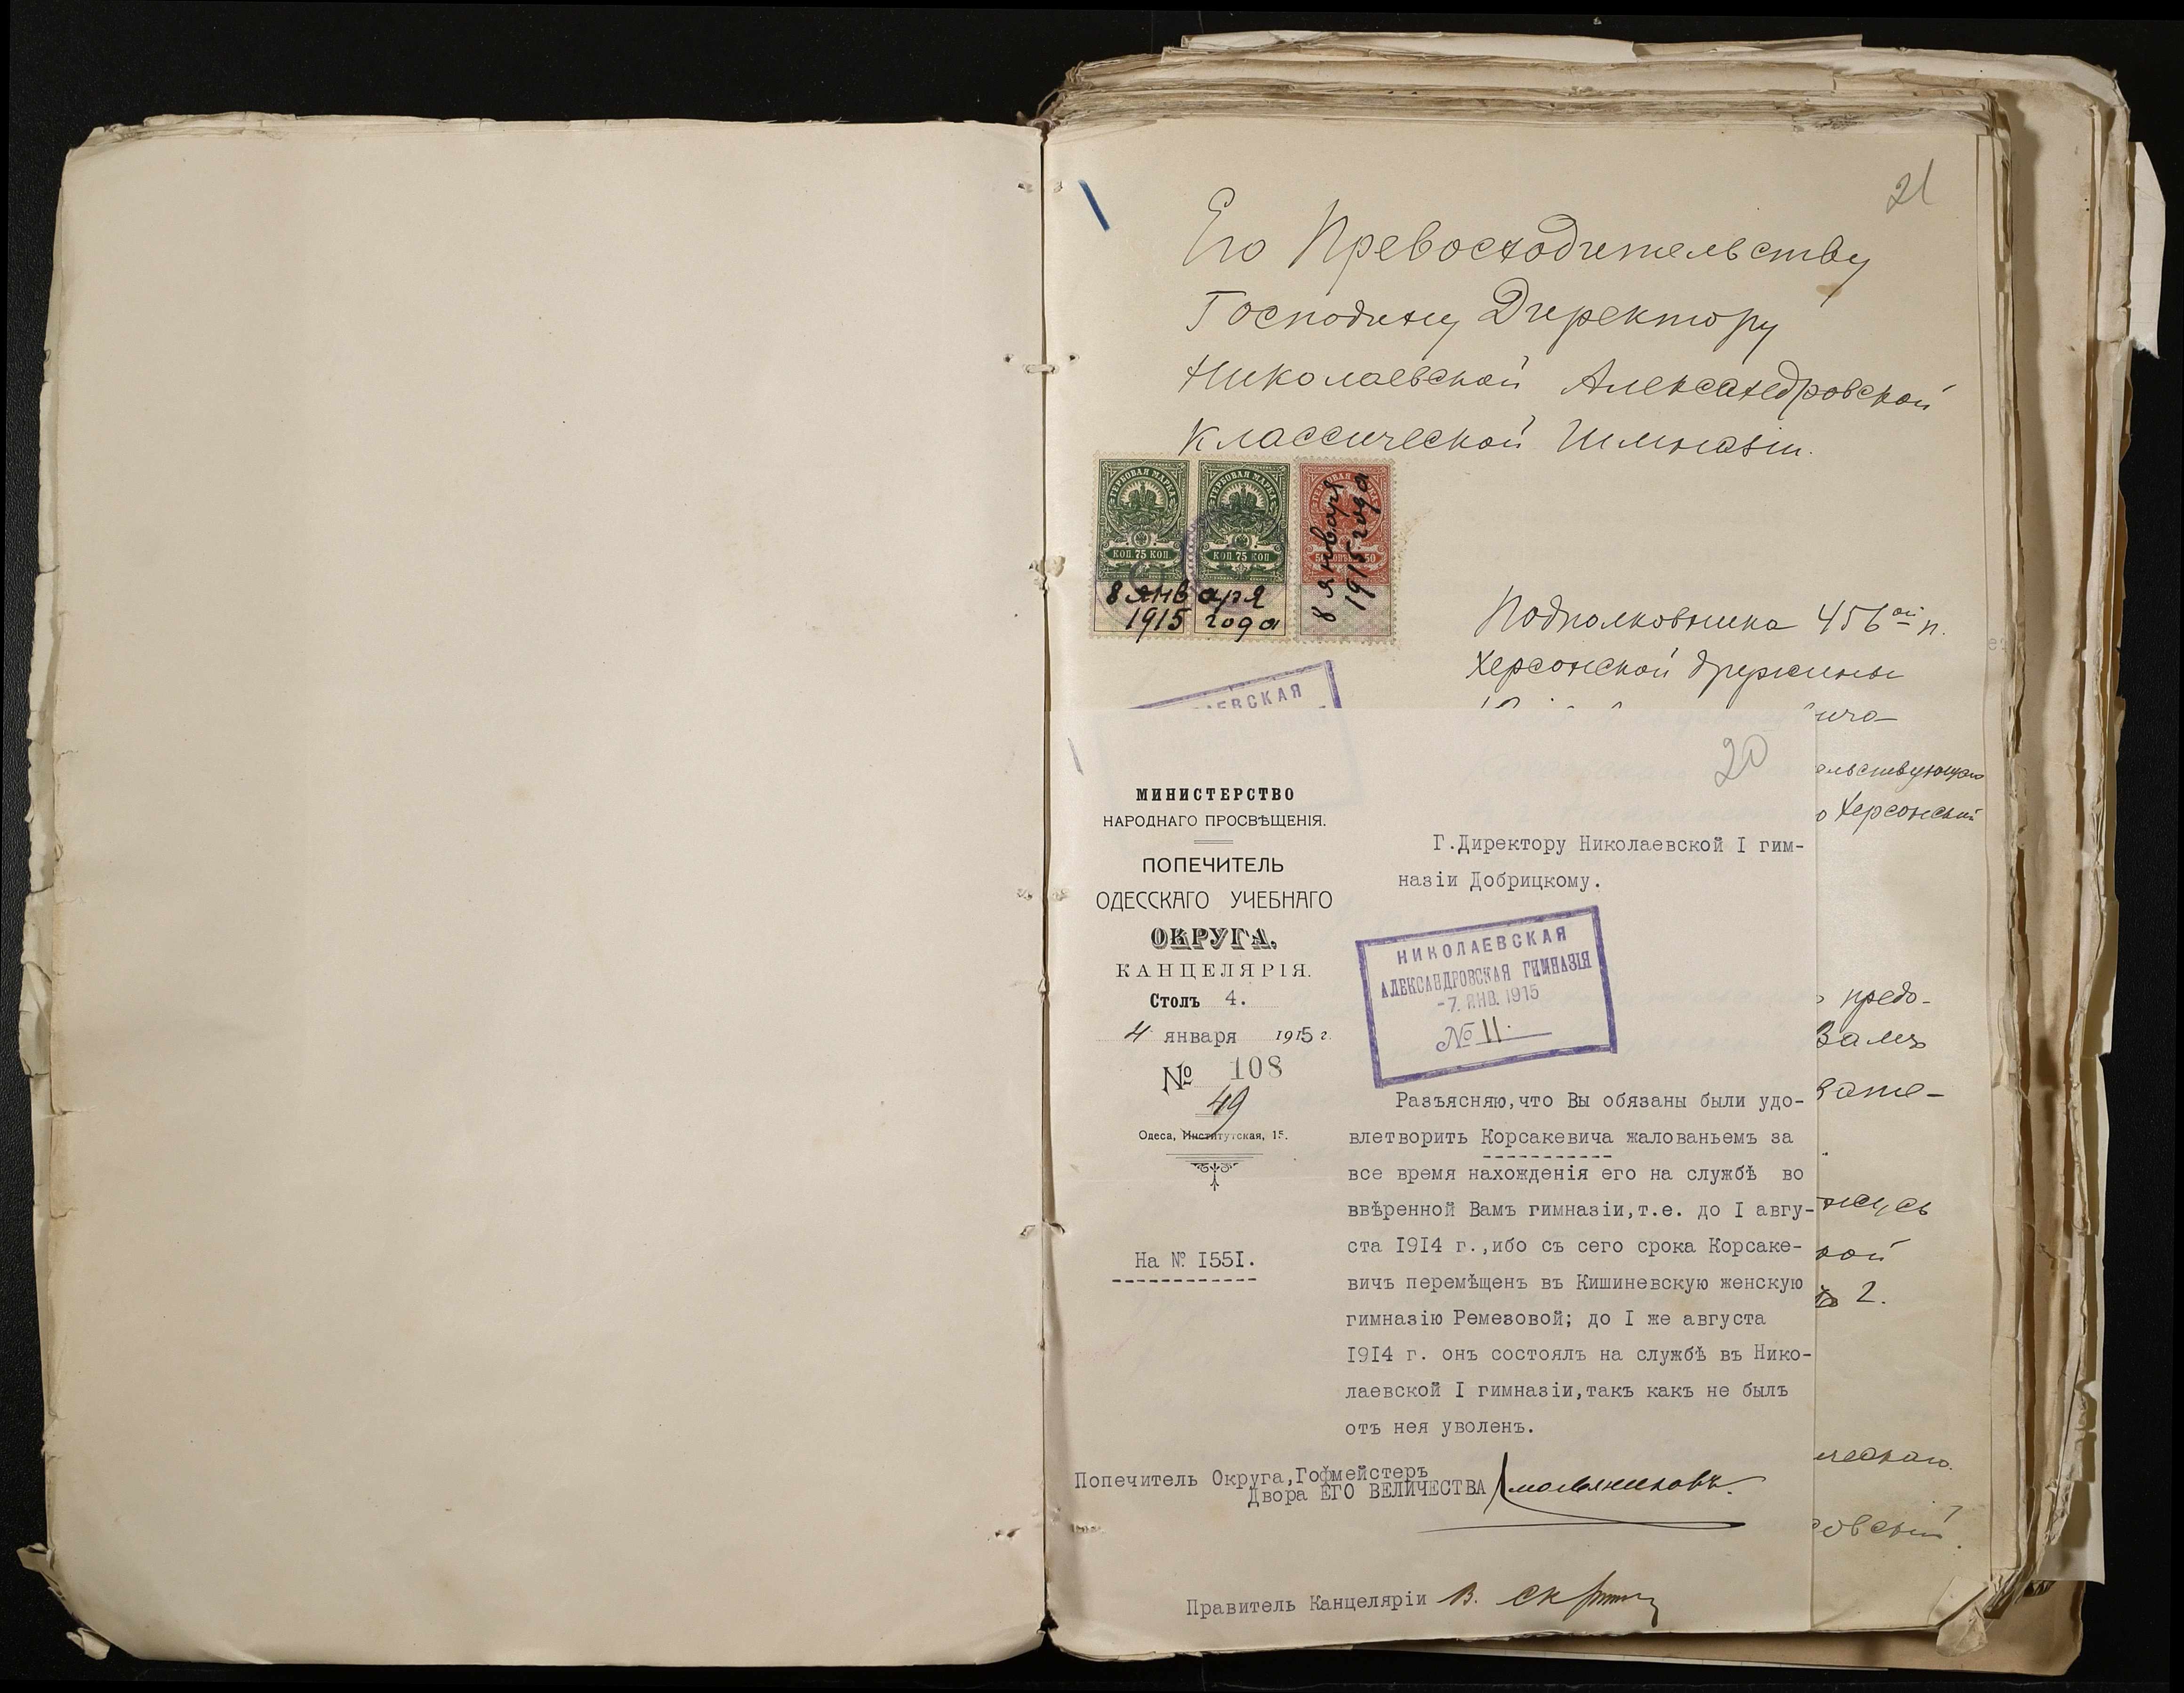 21
Его Превосходительству
Господину Директору
Николаевской Александровской
Классической Гимназіи.
ГЕРБОВАЯ МАРКА
КОП. 75 КОП.
ГЕРБОВАЯ МАРКА
КОП. 75 КОП.
50
8 января
1915 года
8 января
1915 года
Подполковника 456ой п.
Херсонской дружины
ЛАЕВСКАЯ
ича
ельствующаго
о Херсонской
предо-
Вамъ
вате-
ной
2.
20
МИНИСТЕРСТВО
НАРОДНАГО ПРОСВѢЩЕНІЯ.
ПОПЕЧИТЕЛЬ
ОДЕССКАГО УЧЕБНАГО
ОКРУГА,
КАНЦЕЛЯРІЯ.
Столъ 4.
4 января 1915 г.
№ 108
49
Одеса, Институтская, 15.
На № I55I.
Г.Директору Николаевской I гим-
назіи Добрицкому.
НИКОЛАЕВСКАЯ
АЛЕКСАНДРОВСКАЯ ГИМНАЗІЯ
-7. ЯНВ. 1915
№ 11.
Разъясняю,что Вы обязаны были удо-
влетворить Корсакевича жалованьемъ за
все время нахожденія его на службѣ во
ввѣренной Вамъ гимназіи,т.е. до I авгу-
ста I9I4 г.,ибо съ сего срока Корсаке-
вичъ перемѣщенъ въ Кишиневскую женскую
гимназію Ремезовой; до I же августа
I9I4 г. онъ состоялъ на службѣ въ Нико-
лаевской I гимназіи,такъ какъ не былъ
отъ нея уволенъ.
Попечитель Округа,Гофмейстеръ
Двора ЕГО ВЕЛИЧЕСТВА Смольяниновъ.
Правитель Канцеляріи В.